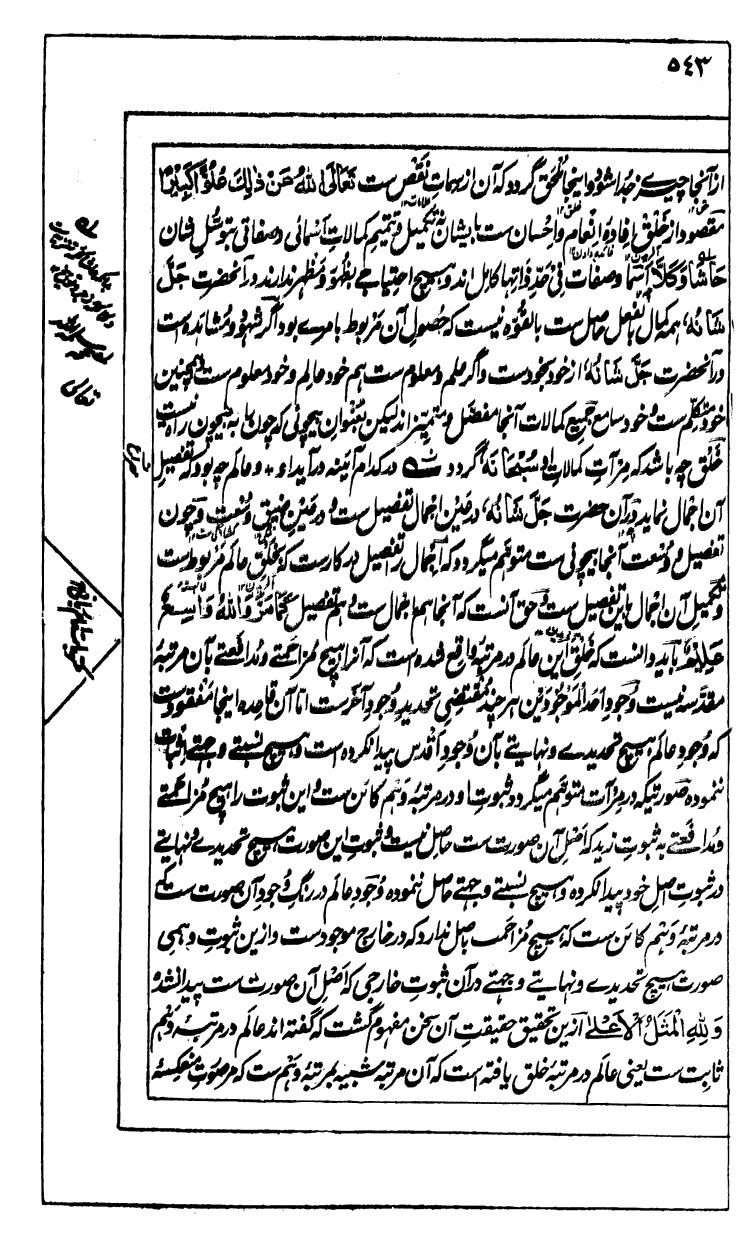 ٥٤٣
از آنجا چیزے جدا شود و اینجا ملحق گردد که آن از سمات نقص ست تَعَالَی اللهُ عَنْ ذٰلِكَ عُلُوًّا كَبِيْرًا
مقصود از خلق افادهٔ انعام و احسان ست بایشان نه تکمیل و تتمیم کمالات اسمائی و صفاتی بتوسّل ایشان
حَاشَا وَكَلَّا اسما و صفات فی حدّ ذاتها کامل اند و هیچ احتیاجے بظهور و مَظهر ندارند در آنحضرت جَلَّ
شَانُهٗ، همه کمال بالفعل حاصل ست بالقوّه نیست که حُصول آن مربوط بامرے بود اگر شهود و مشاهده است
در آنحضرت جَلَّ شَانُهٗ، از خود بخودست و اگر علم و معلوم ست هم خود عالم و خود معلوم ست همچنین
خود متکلّم ست و خود سامع جمیع کمالات آنجا مفصّل و متمیّز اند لیکن بعنوان بیچونی که چون را به بیچون راه نیست
خلق چه باشد که مرآت کمالات او سُبْحَانَهٗ گردد در کدام آئینه درآید او + و عالم چه بود که تفصیل
آن اجمال نماید در آن حضرت جَلَّ شَانُهٗ، در عین اجمال تفصیل ست و در عین ضیق وُسعت و چون
تفصیل و وُسعت آنجا بیچونی ست متوهّم میگردد که آن اجمال را تفصیل در کارست که بخلق عالم مربوط ست
و تکمیل آن اجمال باین تفصیل ست و حق آنست که آنجا هم اجمال ست و هم تفصیل كَمَا مَرَّ وَاللهُ وَاسِعٌ
عَلِيْمٌ باید دانست که خلق این عالم در مرتبهٔ واقع شده است که آنرا هیچ مُزاحمتے و مُدافعتے بآن مرتبهٔ
مقدّسه نیست وجود اَحَدُ الْمَوْجُوْدَيْن هر چند مُقتضی تحدید وجود آخرست امّا آن قاعده اینجا مَفقودست
که وجود عالم هیچ تحدیدے و نهایتے بآن وجود اقدس پیدا نکرده است و هیچ نسبتے و جهتے اثبات
ننموده صورتیکه در مرآت متوهّم میگردد ثبوت او در مرتبهٔ وَهم کائن ست و این ثبوت را هیچ مُزاحمتے
و مُدافعتے به ثبوت زید که اَصل آن صورت ست حاصل نیست و ثبوت این صورت هیچ تحدیدے و نهایتے
در ثبوت اصل خود پیدا نکرده و هیچ نسبتے و جهتے حاصل ننموده وجود عالم در رنگ وُجود آن صورت ست که
در مرتبهٔ وَهم کائن ست که هیچ مُزاحمت باصل ندارد که در خارج موجودست و ازین ثبوت وهمی
صورت هیچ تحدیدے و نهایتے و جهتے در آن ثبوت خارجی که اَصل آن صورت ست پیدا نشد و
وَلِلّٰهِ الْمَثَلُ الْاَعْلٰی ازین تحقیق حقیقت آن سخن مفهوم گشت که گفته اند عالم در مرتبهٔ وَهم
ثابت ست یعنی عالم در مرتبهٔ خلق یافته است که آن مرتبه شبیه بمرتبهٔ وَهم ست که مر صورت منعکسهٔ